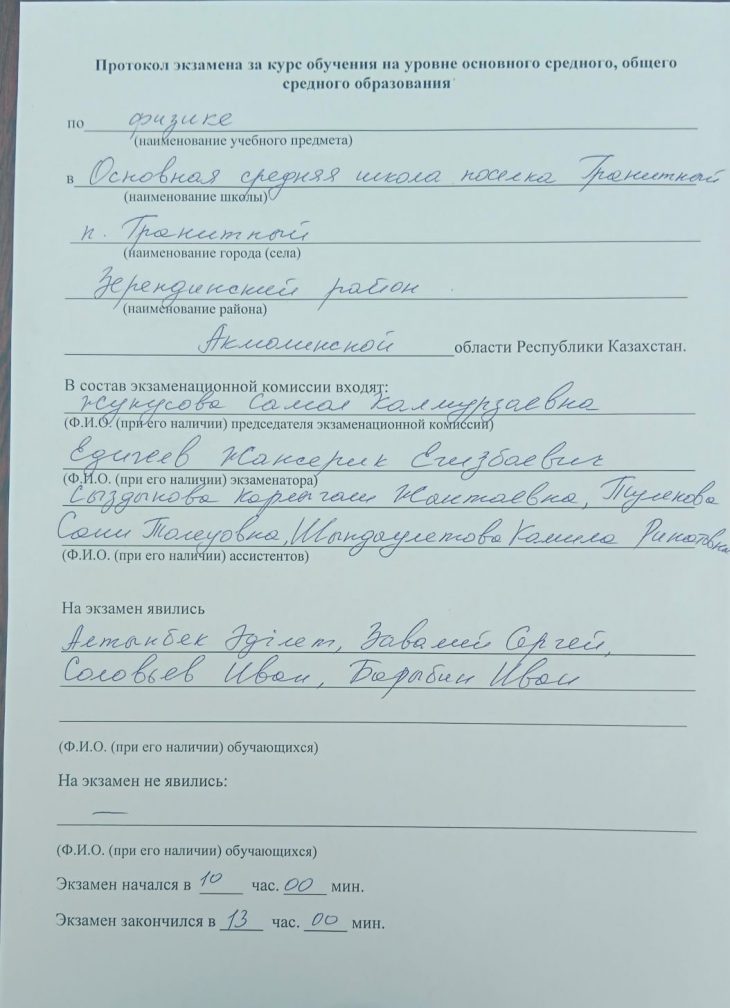 Протокол экзамена за курс обучения на уровне основного среднего, общего
среднего образования
по физике
(наименование учебного предмета)
в Основная средняя школа поселка Гранитный
(наименование школы)
п. Гранитный
(наименование города (села)
Зерендинский район
(наименование района)
Акмолинской области Республики Казахстан.
В состав экзаменационной комиссии входят:
Жунусова Самал Калмурзаевна
(Ф.И.О. (при его наличии) председателя экзаменационной комиссии)
Едигеев Жансерик Егизбаевич
(Ф.И.О. (при его наличии) экзаменатора)
Сыздыкова Карлыгаш Жантаевна, Тулекова
Сания Толеуовна, Шындаулетова Камила Ринатовна
(Ф.И.О. (при его наличии) ассистентов)
На экзамен явились
Алтынбек Әділет, Завалий Сергей,
Соловьев Иван, Барыбин Иван
(Ф.И.О. (при его наличии) обучающихся)
На экзамен не явились:
—
(Ф.И.О. (при его наличии) обучающихся)
Экзамен начался в 10 час. 00 мин.
Экзамен закончился в 13 час. 00 мин.